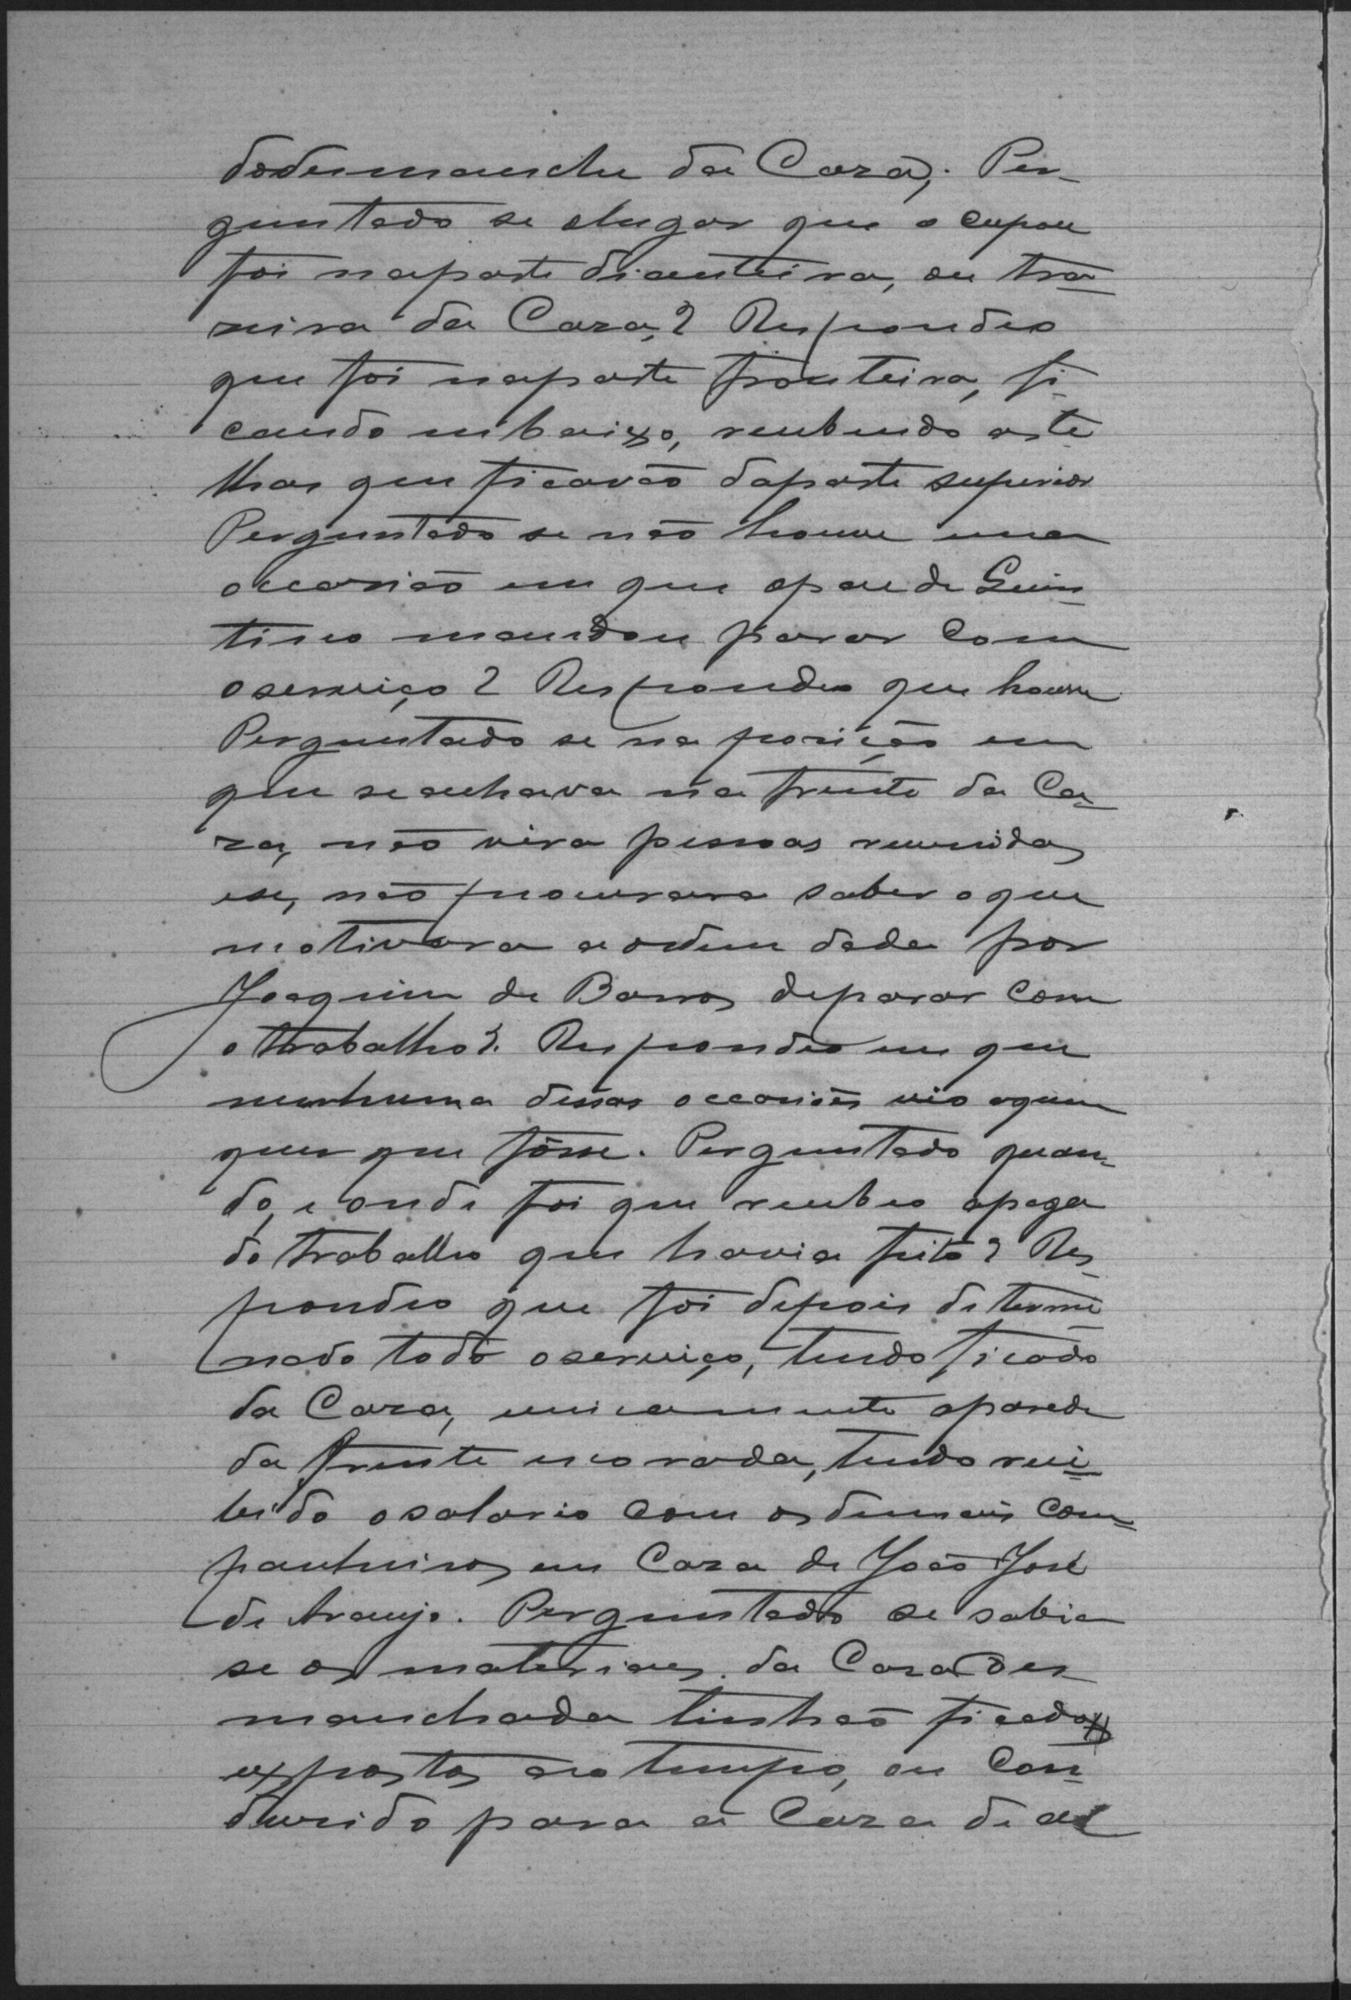 dodesmanche da Caza,. Per-
guntado se olugar que o cupou
foi naparte dianteira, ou tra-
zeira da Caza,? Respondeo
que foi naparte fronteira, fi-
cando em baixo, recebendo aste
lhas que ficavão daparte superior
Perguntado se não houve uma
occasião em que opae de Guin-
tino mandou parar com
oserviço? Respondeo que houve
Perguntado se na posição em
que seachava na frente da Ca-
za, não vira pessoas reunidas
ese, não procurara saber oque
motivara aordem dada por
Joaquim de Barros deparar com
o trabalho?. Respondeo em que
nenhuma dessas occasiões vio aquem
quer que fôsse. Perguntado quan-
do, e onde foi que recebeo apaga
do trabalho que havia feito? Res-
pondeo que foi depois de termi-
nado todo oserviço, tendo ficado
da Caza, unicamente aparede
da frente escorada, tendo rece-
bido osalario com os demais com-
panheiros em Caza de João José
de Araujo. Perguntado se sabia
se os materiaes. da Caza des-
manchada tinhão ficado
expostos aotempo, ou Con-
duzido para a Caza de al